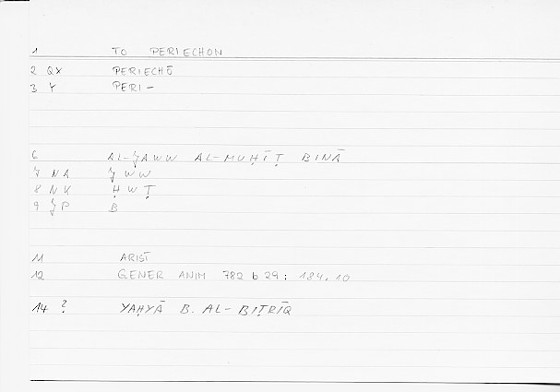 1 TO PERIECHON
2 QX PERIECHĒ
3 Y PERI-
6 AL-ǦAWW AL-MUḤĪṬ BINĀ
7 NA ǦWW
8 NK ḤWṬ
9 ǦP B
11 ARIST
12 GENER ANIM 782 b 29; 184.10
14 ? YAḤYĀ B. AL-BIṬRĪQ